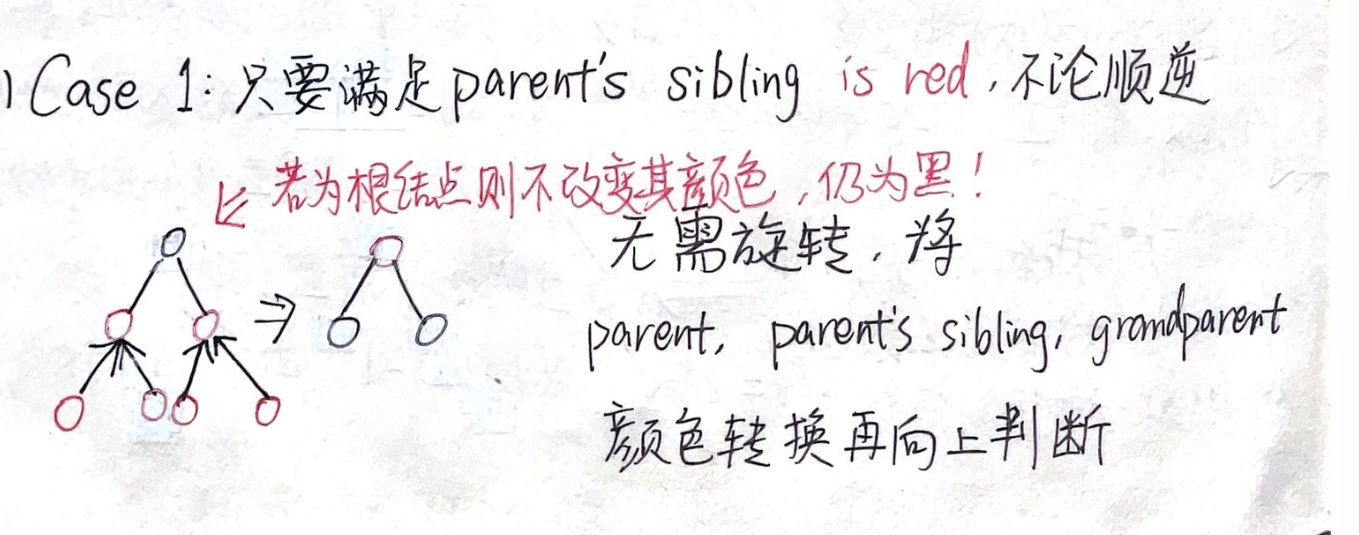 Case 1: 只要满足parent's sibling is red,不论顺逆
若为根结点则不改变其颜色,仍为黑!
无需旋转,将
parent, parent's sibling, grandparent
颜色转换再向上判断